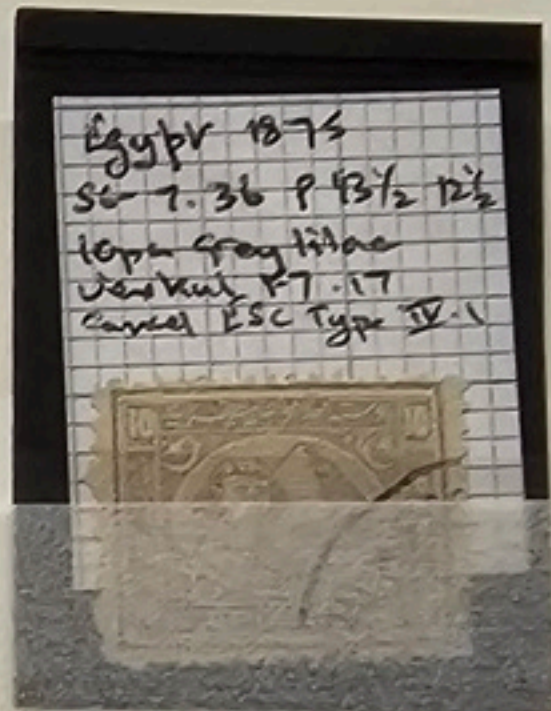 Egypt 1875
SG 7.36 P 13½ 12½
10pa Grey lilac
F7.17
Cancel ESC Type IV.1
10 10